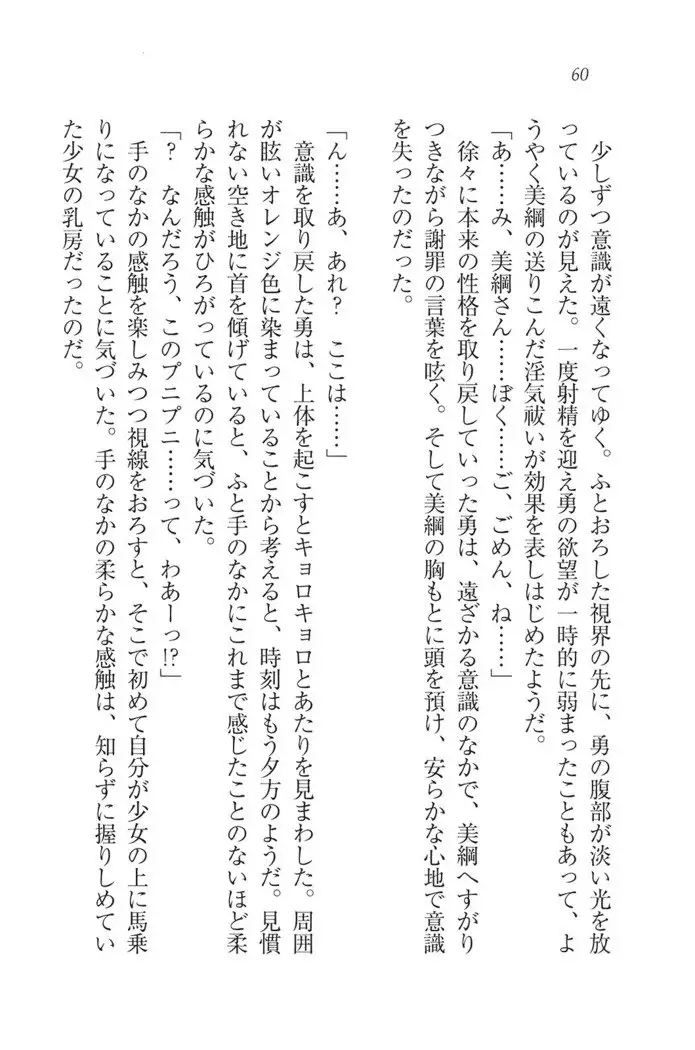 60
少しずつ意識が遠くなってゆく。ふとおろした視界の先に、勇の腹部が淡い光を放
っているのが見えた。一度射精を迎え勇の欲望が一時的に弱まったこともあって、よ
うやく美綱の送りこんだ淫気祓いが効果を表しはじめたようだ。
「あ……み、美綱さん……ぼく……ご、ごめん、ね……」
徐々に本来の性格を取り戻していった勇は、遠ざかる意識のなかで、美綱へすがり
つきながら謝罪の言葉を呟く。そして美綱の胸もとに頭を預け、安らかな心地で意識
を失ったのだった。
「ん……あ、あれ？　ここは……」
意識を取り戻した勇は、上体を起こすとキョロキョロとあたりを見まわした。周囲
が眩いオレンジ色に染まっていることから考えると、時刻はもう夕方のようだ。見慣
れない空き地に首を傾げていると、ふと手のなかにこれまで感じたことのないほど柔
らかな感触がひろがっているのに気づいた。
「？　なんだろう、このプニプニ……って、わあーっ!?」
手のなかの感触を楽しみつつ視線をおろすと、そこで初めて自分が少女の上に馬乗
りになっていることに気づいた。手のなかの柔らかな感触は、知らずに握りしめてい
た少女の乳房だったのだ。